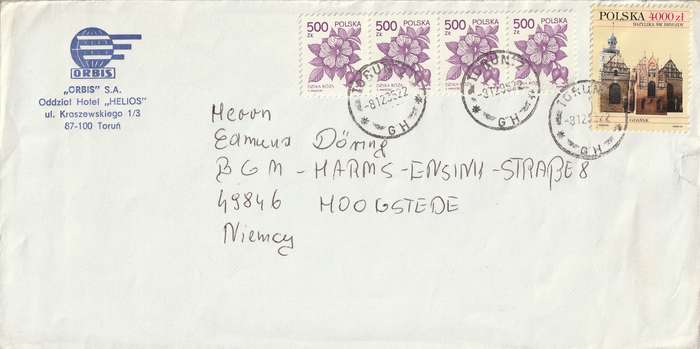 ORBIS
„ORBIS" S.A.
Oddział Hotel „HELIOS"
ul. Kraszewskiego 1/3
87-100 Toruń
500 POLSKA
ZŁ
DZIKA RÓŻA
500 POLSKA
ZŁ
500 POLSKA
ZŁ
500 POLSKA
ZŁ
POLSKA 4000 zł
BAZYLIKA ŚW. BRYGIDY
GDAŃSK
TORUŃ 5
-8 12 95 22
GH
TORUŃ 5
-8 12 95 22
GH
TORUŃ 5
-8 12 95 22
GH
Herrn
Edmund Döring
BGM-HARMS-ENSINK-STRAßE 8
49846 HOOGSTEDE
Niemcy